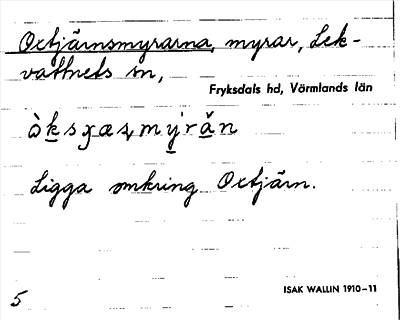 Oxtjärnsmyrarna, myrar, Lek-
vattnets sn,
Fryksdals hd, Värmlands län
Ligga omkring Oxtjärn.
ISAK WALLIN 1910–11
5